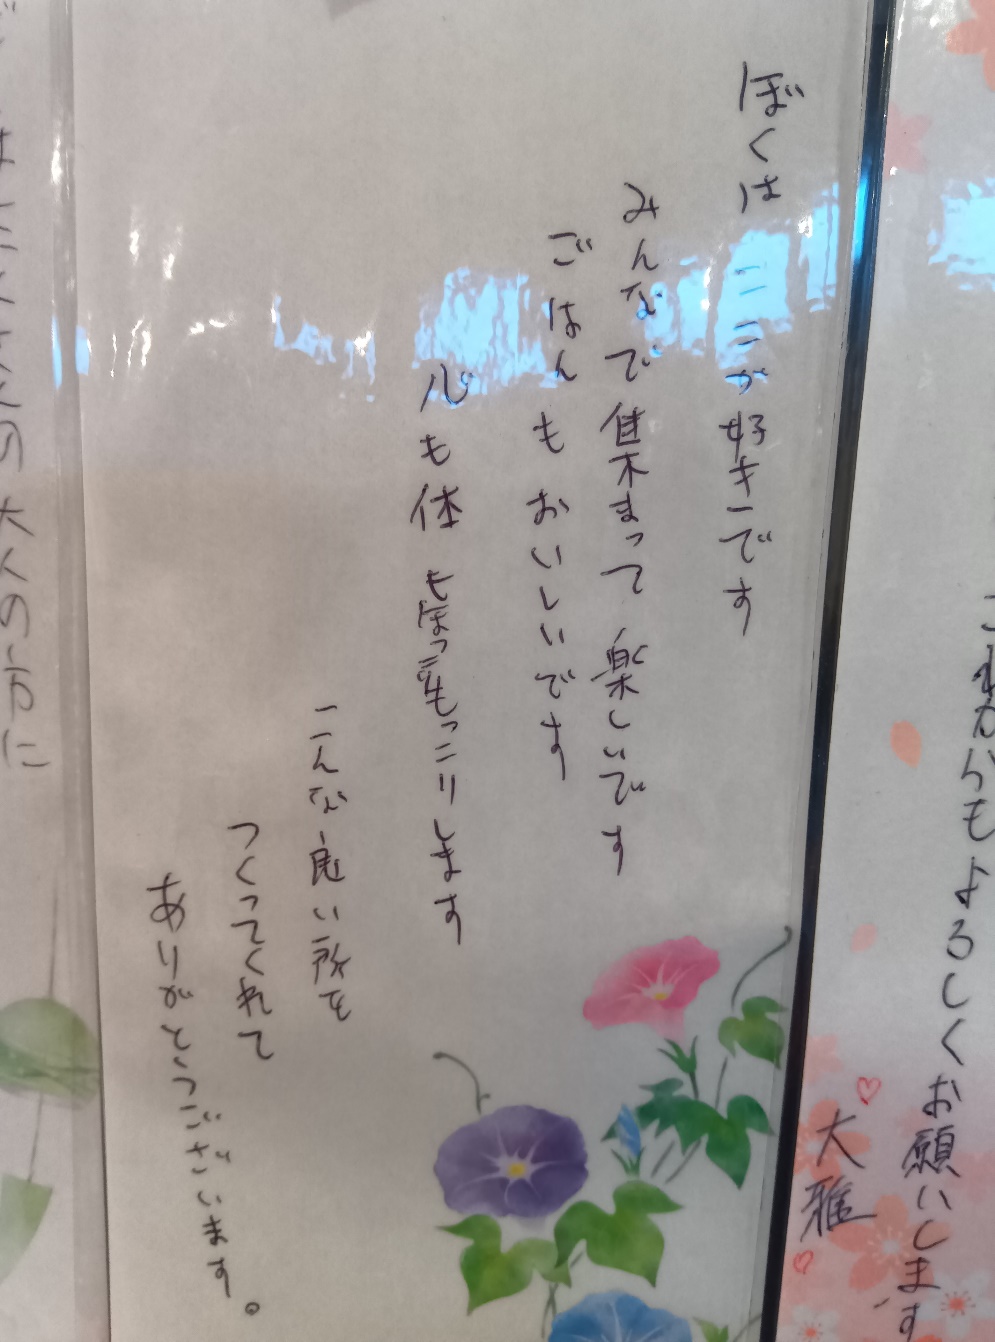 これからもよろしくお願いします
大雅
ぼくは ここが好きです
みんなで集まって 楽しいです
ごはんもおいしいです
心も体も
します
こんな良い所を
つくってくれて
ありがとうございます。
たくさんの大人の方に